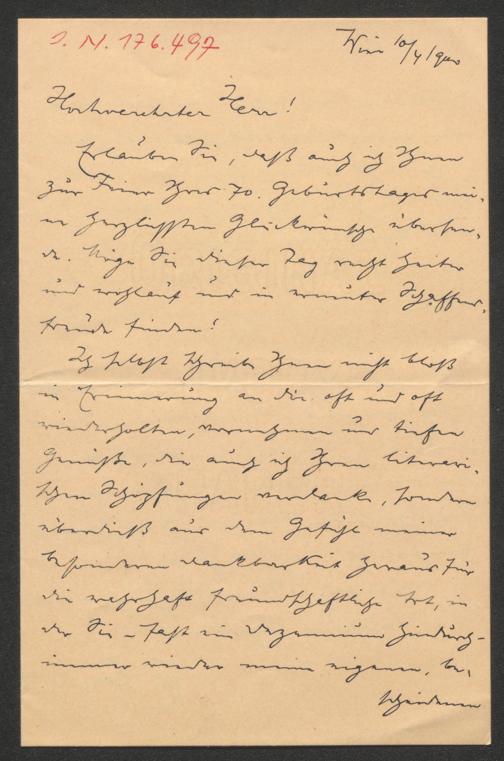 I. N. 176.497
Wien 10/4 1900
Hochverehrter Herr!
Erlauben Sie, daß auch ich Ihnen
zur Feier Ihres 70. Geburtstages mei-
ne herzlichsten Glückwünsche übersen-
de. Möge Sie dieser Tag recht heiter
und wohlauf und in munterer Schaffens-
freude finden!
Ich selbst schreibe Ihnen nicht bloß
in Erinnerung an die oft und oft
wiederholten, vornehmen und tiefen
Genüsse, die auch ich Ihren literari-
schen Schöpfungen verdanke, sondern
überdieß aus dem Gefühl meiner
besonderen Dankbarkeit heraus für
die wahrhaft freundschaftliche Art, in
der Sie – fast ein Dezennium hindurch –
immer wieder meine eigenen, be-
scheidenen